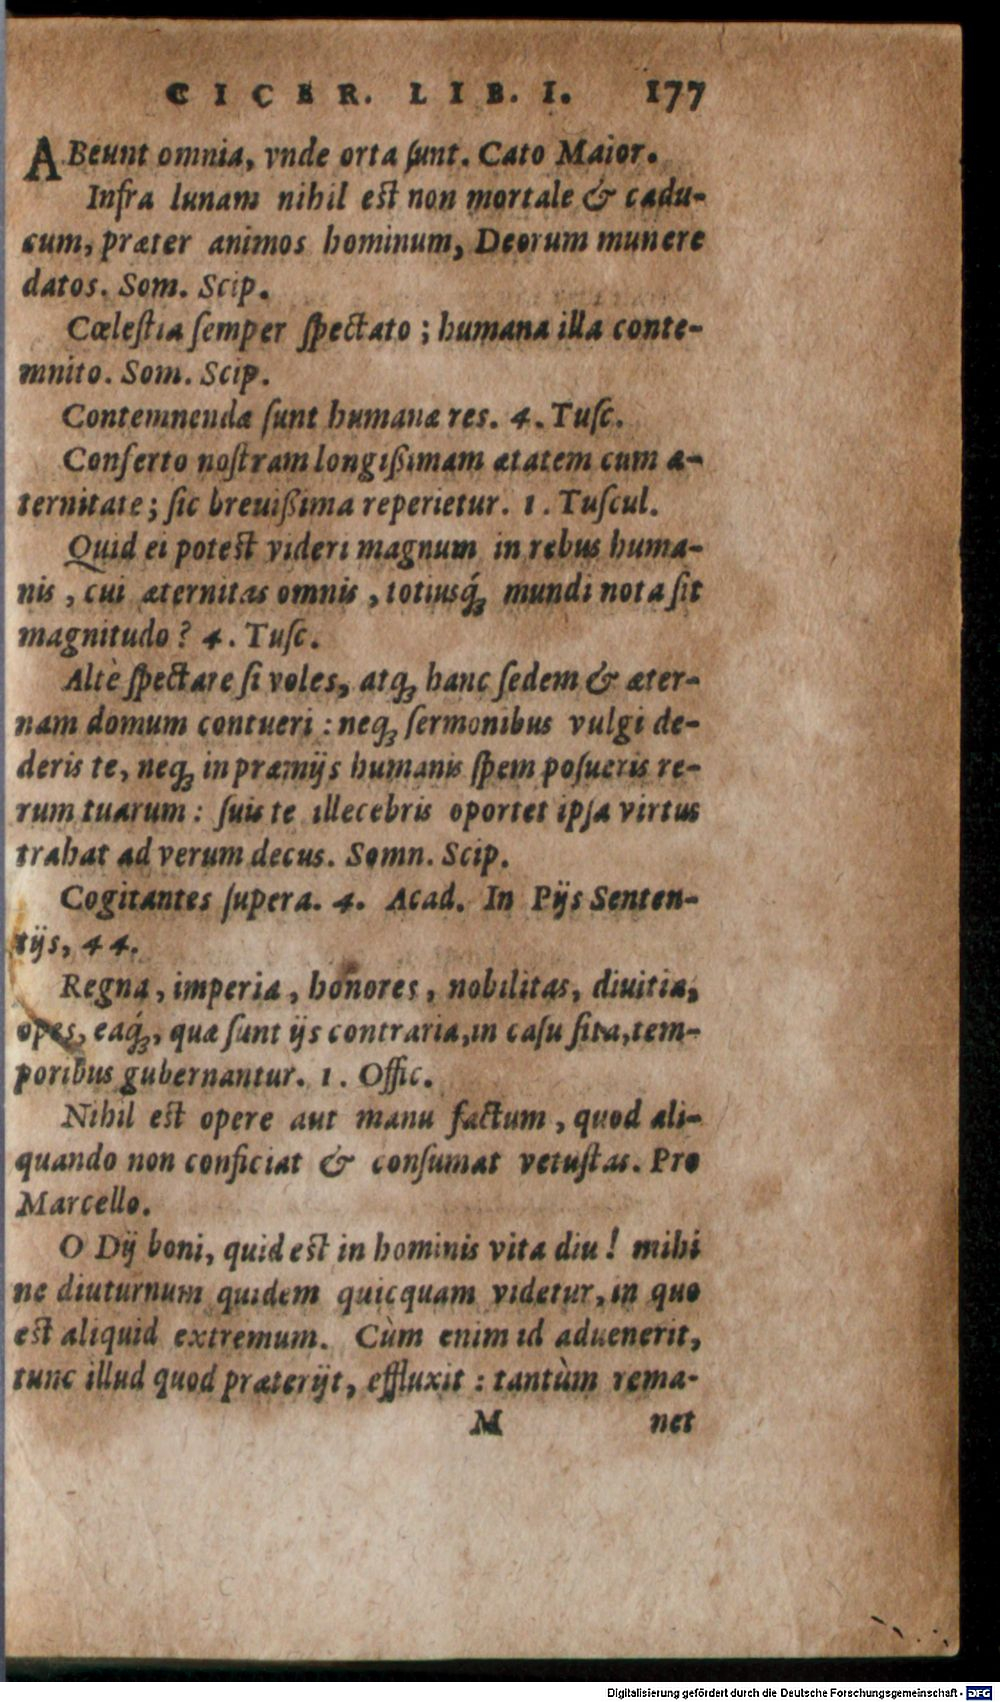 CICER. LIB. I. 177
ABeunt omnia, vnde orta sunt. Cato Maior.
Infra lunam nihil est non mortale & cadu-
cum, præter animos hominum, Deorum munere
datos. Som. Scip.
Cœlestia semper spectato; humana illa conte-
mnito. Som. Scip.
Contemnendæ sunt humanæ res. 4. Tusc.
Conferto nostram longißimam ætatem cum æ-
ternitate; sic breuißima reperietur. 1. Tuscul.
Quid ei potest videri magnum in rebus huma-
nis, cui æternitas omnis, totiusq́ꝫ mundi nota sit
magnitudo? 4. Tusc.
Altè spectare si voles, atqꝫ hanc sedem & æter-
nam domum contueri: neqꝫ sermonibus vulgi de-
deris te, neqꝫ in præmijs humanis spem posueris re-
rum tuarum: suis te illecebris oportet ipsa virtus
trahat ad verum decus. Somn. Scip.
Cogitantes supera. 4. Acad. In Pijs Senten-
tijs, 44.
Regna, imperia, honores, nobilitas, diuitiæ,
opes, eaq́ꝫ, quæ sunt ijs contraria, in casu sita, tem-
poribus gubernantur. 1. Offic.
Nihil est opere aut manu factum, quod ali-
quando non conficiat & consumat vetustas. Pro
Marcello.
O Dij boni, quid est in hominis vita diu! mihi
ne diuturnum quidem quicquam videtur, in quo
est aliquid extremum. Cùm enim id aduenerit,
tunc illud quod præterijt, effluxit: tantùm rema-
M net
Digitalisierung gefördert durch die Deutsche Forschungsgemeinschaft - DFG